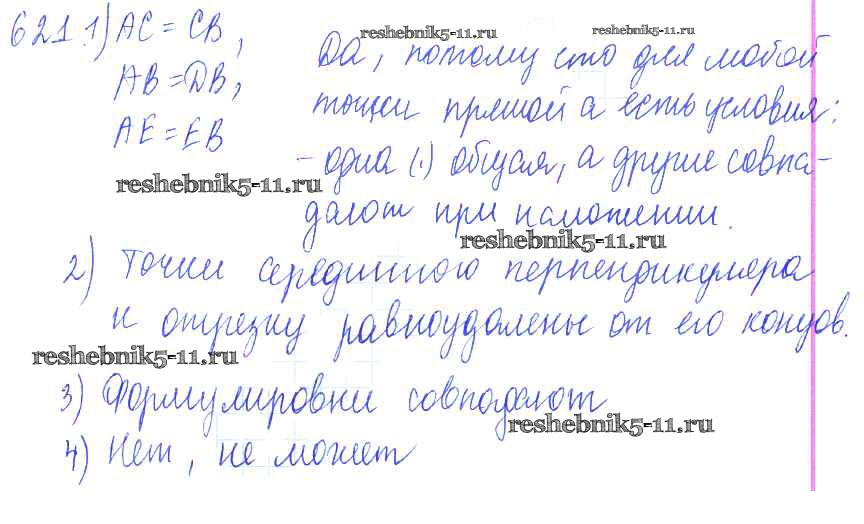 reshebnik5-11.ru
reshebnik5-11.ru
621. 1) AC = CB,
AB = DB,
AE = EB
Да, потому что для любой
точки прямой а есть условия:
- одна (·) общая, а другие совпа-
дают при наложении.
reshebnik5-11.ru
reshebnik5-11.ru
2) Точки серединного перпендикуляра
к отрезку равноудалены от его концов.
reshebnik5-11.ru
3) Формулировки совпадают
reshebnik5-11.ru
4) Нет, не может